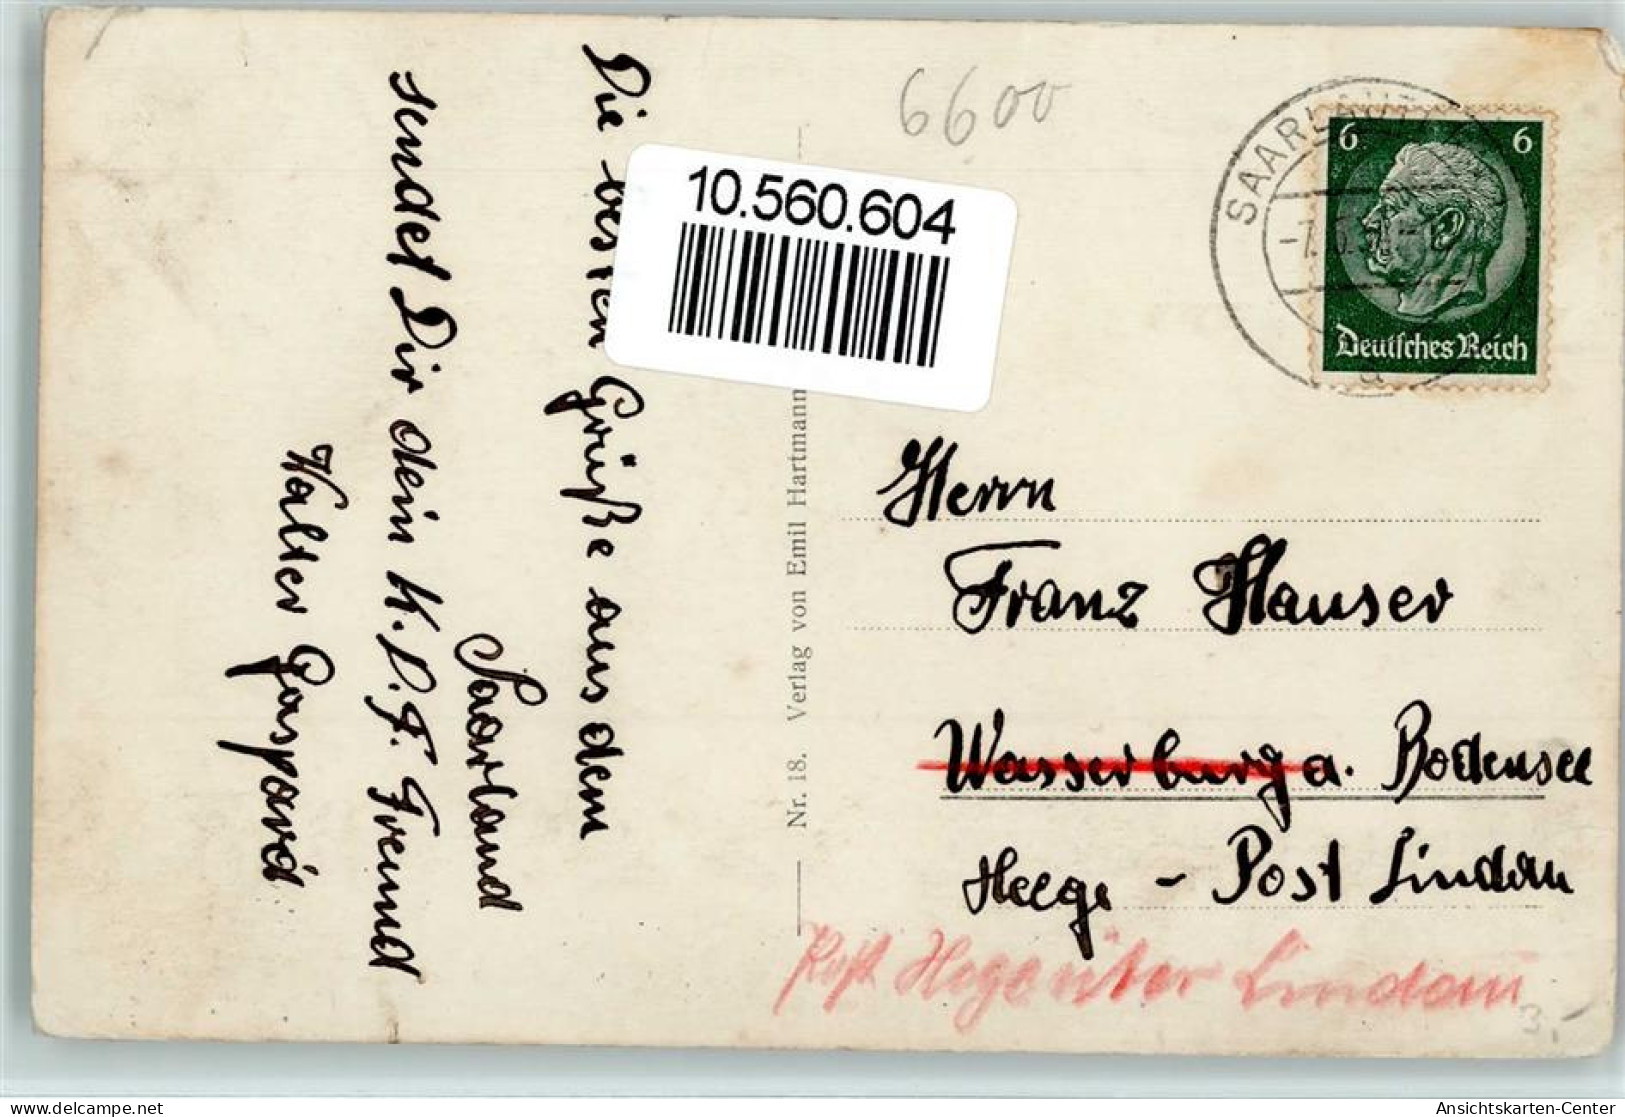 Die besten Grüße aus dem
Saarland
sendet Dir dein K.d.F. Freund
Walter Gaspard
6600
10.560.604
Nr. 18. Verlag von Emil Hartmann
SAARLAUT
6 6
Deutsches Reich
a
Herrn
Franz Hauser
Wasserburg a. Bodensee
Heege - Post Lindau
Post Hege über Lindau
3,-
delcampe.net
Ansichtskarten-Center